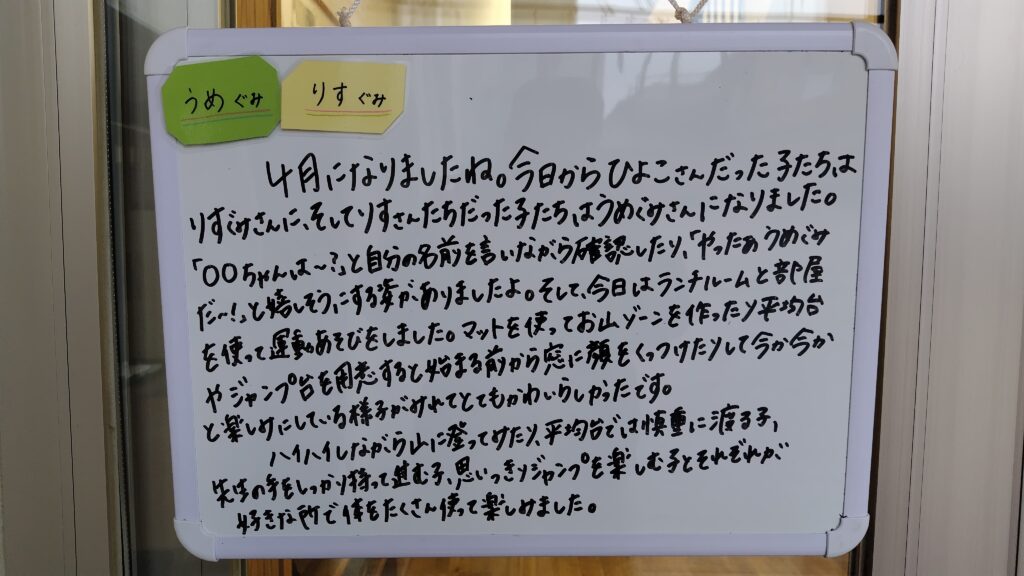 うめぐみ
りすぐみ
4月になりましたね。今日からひよこさんだった子たちは
りすぐみさんに、そしてりすさんたちだった子たちはうめぐみさんになりました。
「〇〇ちゃんは～?」と自分の名前を言いながら確認したり、「やったぁうめぐみ
だ～!」と嬉しそうにする姿がありましたよ。そして、今日はランチルームと部屋
を使って運動あそびをしました。マットを使ってお山ゾーンを作ったり平均台
やジャンプ台を用意すると始まる前から窓に顔をくっつけたりして今か今か
と楽しみにしている様子がみれてとてもかわいらしかったです。
ハイハイしながら山に登ってみたり、平均台では慎重に渡る子、
先生の手をしっかり持って進む子、思いっきりジャンプを楽しむ子とそれぞれが
好きな所で体をたくさん使って楽しめました。